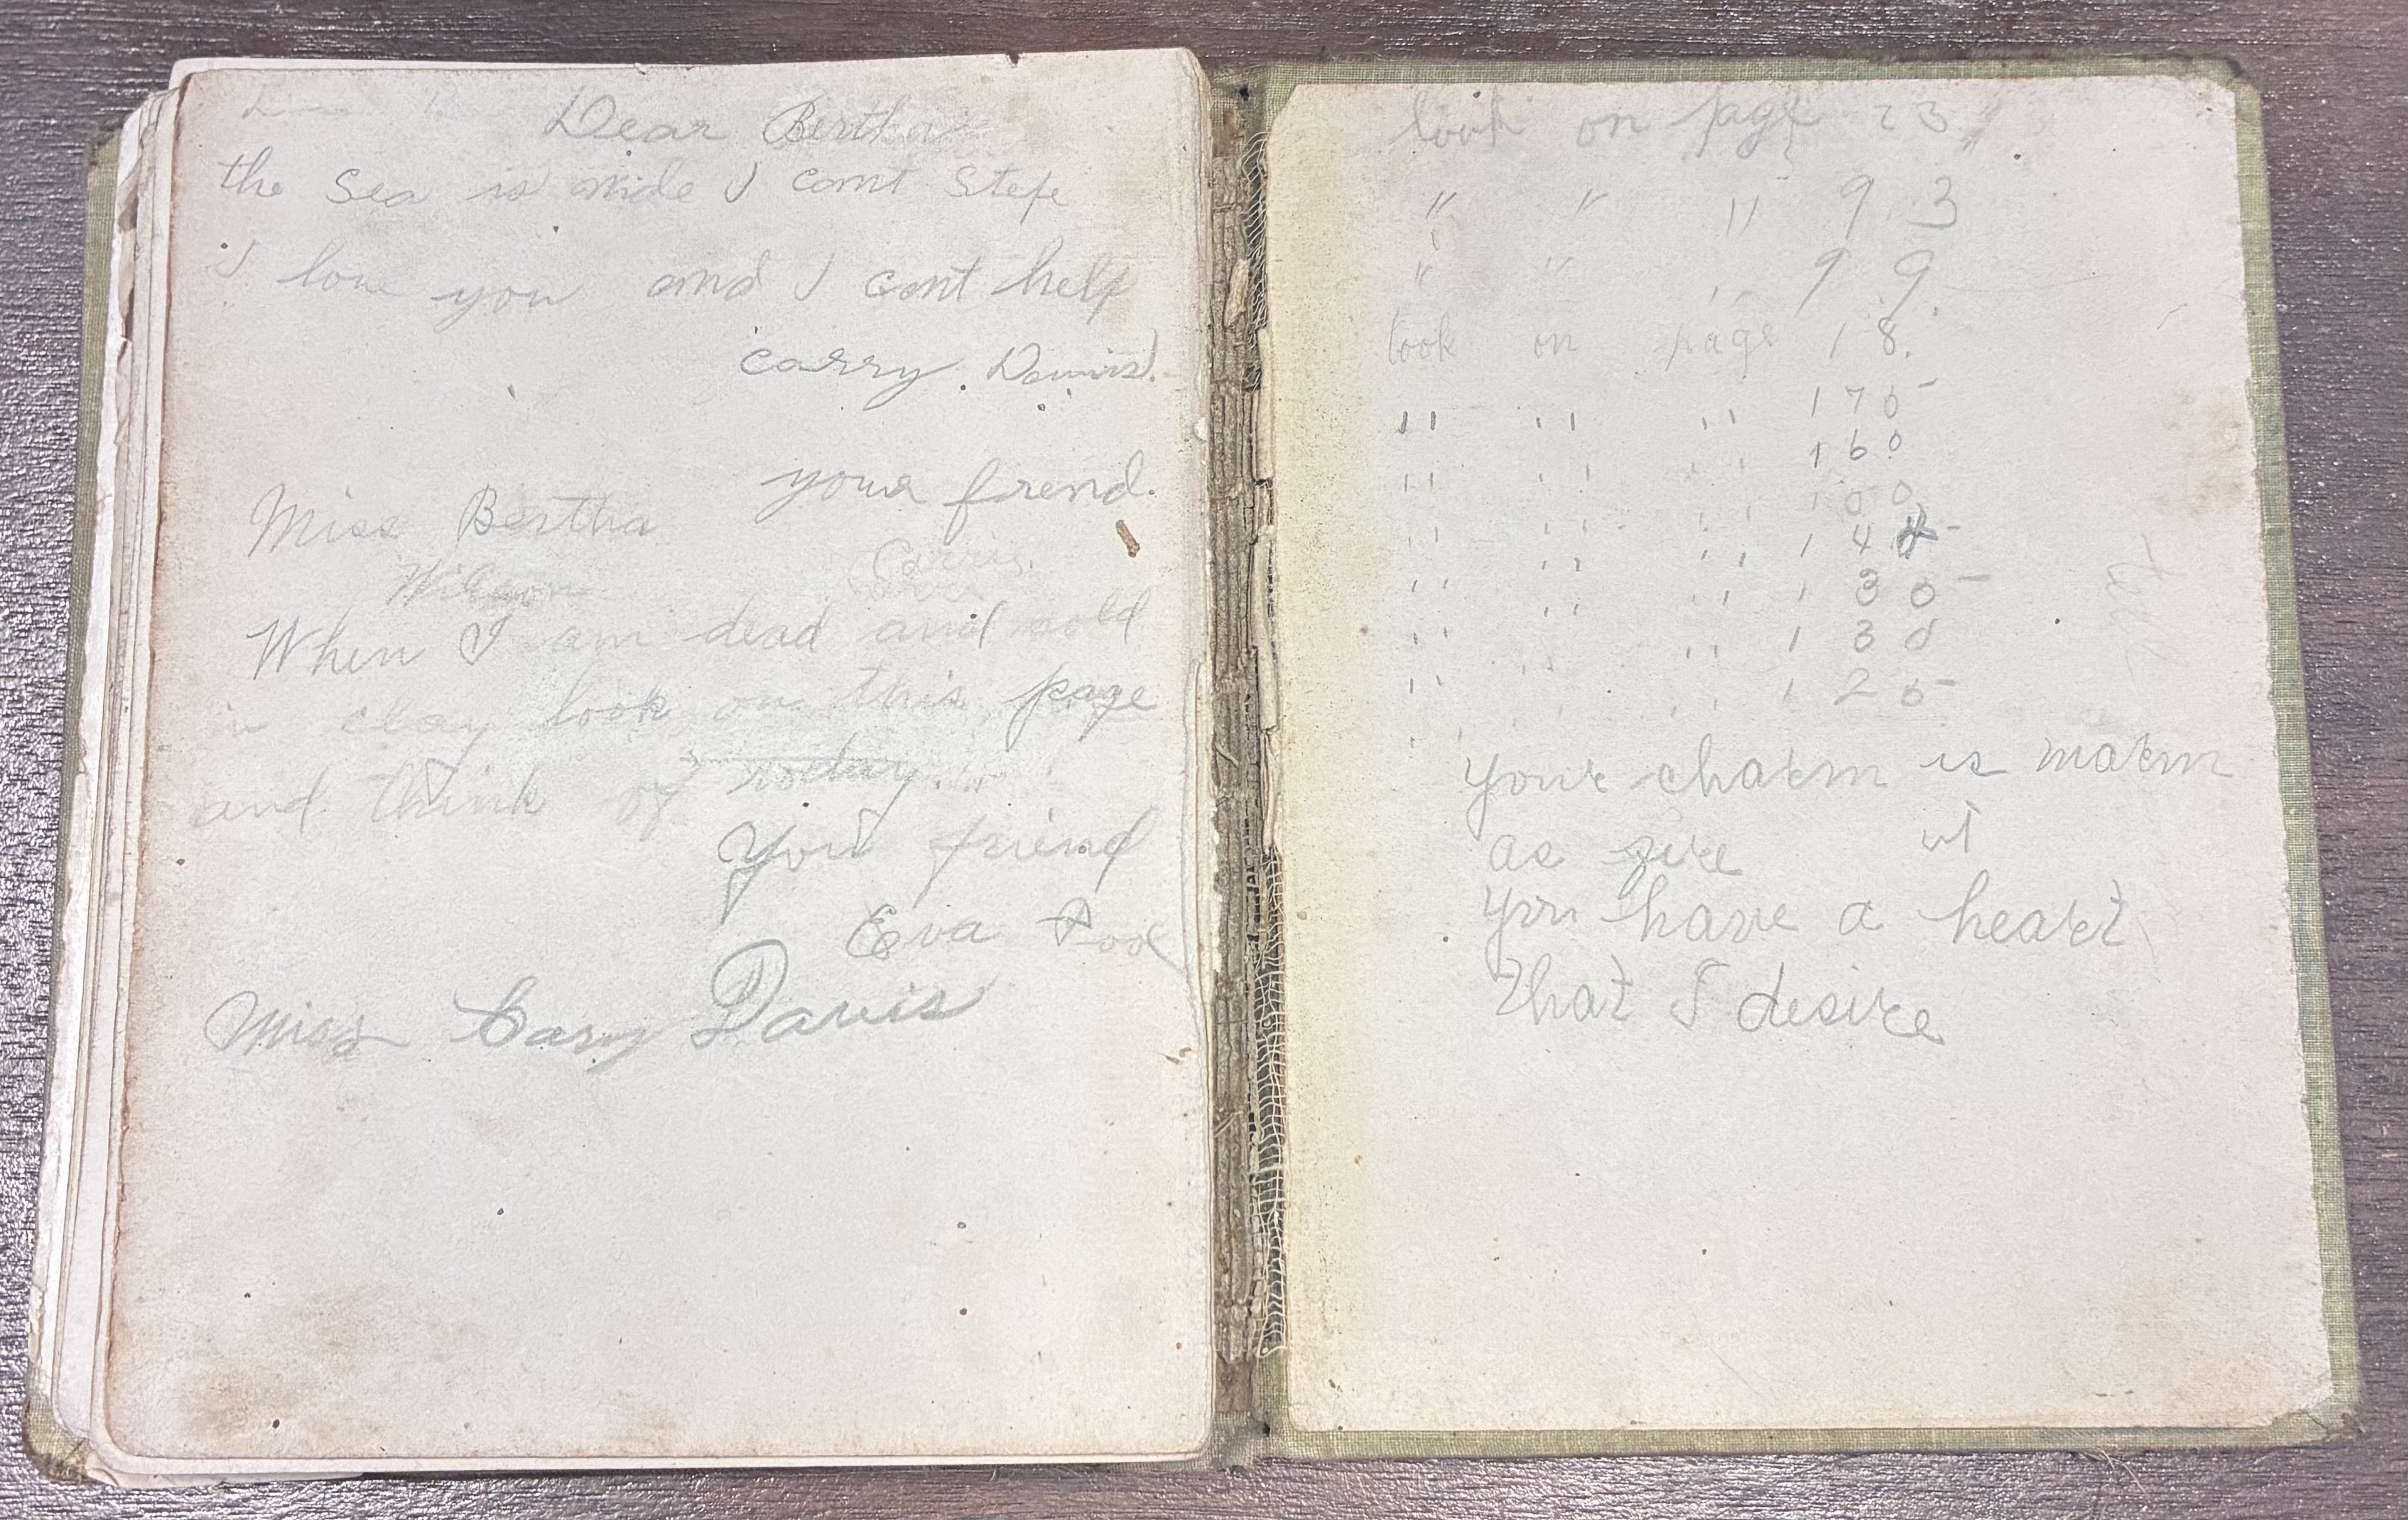 Dear Bertha
the sea is wide I cont stepe
I love you and I cont help
carry. Davis.
your frend.
Miss Bertha
Wilson
Carris.
When I am dead and cold
in clay look on this page
and think of today.
Your friend
Eva
Miss Cary Davis
look on page 23
" " " 93
" " " 99
look on page 18.
" " " 170
" " " 160
" " " 150
" " " 14
" " " 130
" " " 130
" " " 120
your charm is warm
as fire
you have a heart
that I desire